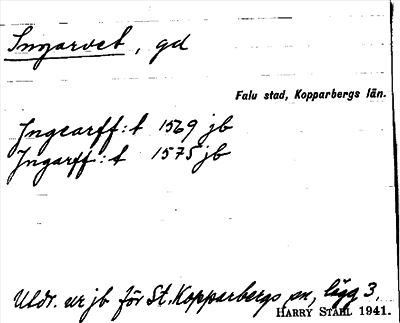 Ingarvet, gd
Falu stad, Kopparbergs län.
Ingearff:t 1569 jb
Ingarff:t 1575 jb
Utdr. ur jb för St. Kopparbergs sn, lägg 3.
HARRY STÅHL 1941.